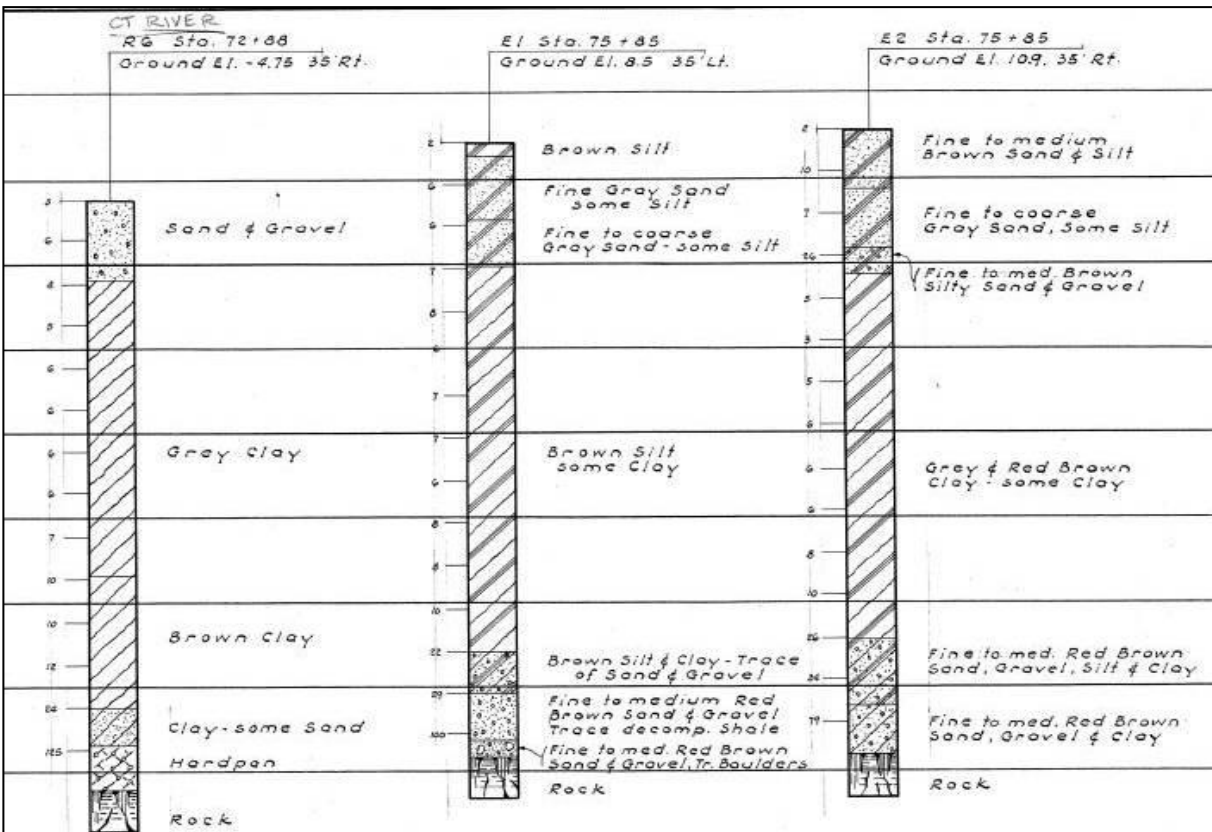 CT RIVER
RG Sta. 72+88
Ground El. -4.75 35' Rt.
5
6
4
5
6
6
6
6
7
10
10
12
24
125
Sand & Gravel
Grey Clay
Brown Clay
Clay-some Sand
Hardpan
Rock
E1 Sta. 75+85
Ground El. 8.5 35' Lt.
2
6
6
7
8
6
7
7
6
8
8
10
22
29
100
Brown Silt
Fine Gray Sand
some Silt
Fine to coarse
Gray Sand - some Silt
Brown Silt
some Clay
Brown Silt & Clay - Trace
of Sand & Gravel
Fine to medium Red
Brown Sand & Gravel
Trace decomp. Shale
Fine to med. Red Brown
Sand & Gravel, Tr. Boulders
Rock
E2 Sta. 75+85
Ground El. 10.9, 35' Rt.
2
10
7
26
5
3
5
6
6
6
8
10
26
34
79
Fine to medium
Brown Sand & Silt
Fine to coarse
Gray Sand, Some Silt
Fine to med. Brown
Silty Sand & Gravel
Grey & Red Brown
Clay - some Clay
Fine to med. Red Brown
Sand, Gravel, Silt & Clay
Fine to med. Red Brown
Sand, Gravel & Clay
Rock